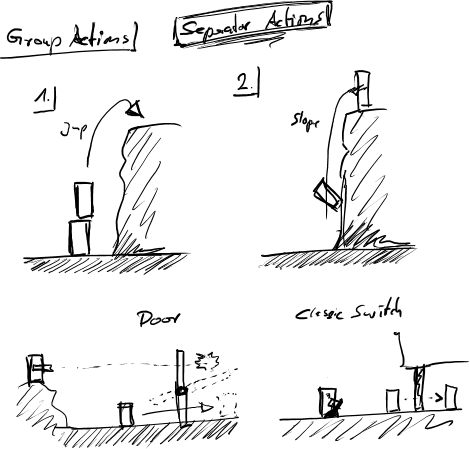 Group Actions
Separator Actions
1.
2.
Jump
Slope
Door
Classic Switch